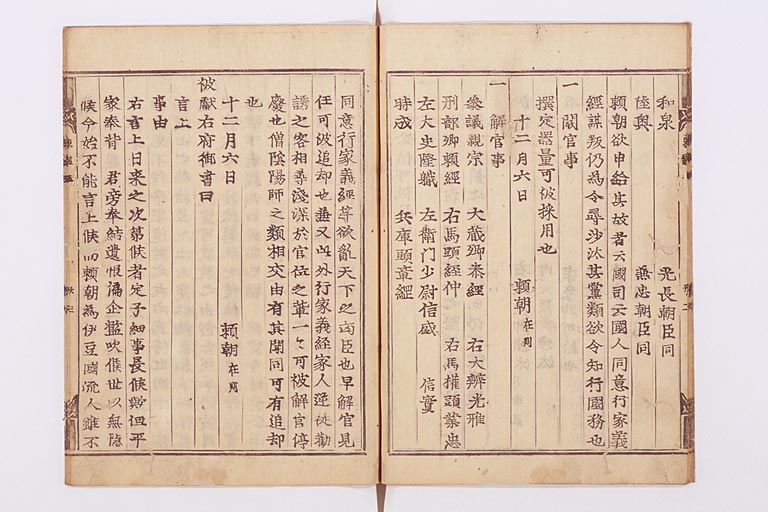 和泉　光長朝臣同
陸奥　兼忠朝臣同
頼朝欲申給其故者云國司云國人同意行家義
經謀叛仍為令尋沙汰其黨類欲令知行國務也
一闕官事
撰定器量可被採用也
十二月六日　頼朝在判
一解官事
参議親宗　大蔵卿泰經　右大辨光雅
刑部卿頼經　右馬頭經仲　右馬權頭業忠
左大史隆職　左衛門少尉信盛　信實
時成　兵庫頭章經
同意行家義經等欲亂天下之凶臣也早解官見
任可被追却也兼又此外行家義經家人追従勧
誘之客相尋淺深於官位之輩一々可被解官停
廢也僧陰陽師之類相交由有其聞同可有追却
也
十二月六日　頼朝在判
被獻右府御書曰
言上
事由
右言上日来之次第候者定子細事長候歟但平
家奉背　君旁奉結遺恨濫企濫吹候世以無隠
候今始不能言上候而頼朝為伊豆國流人雖不